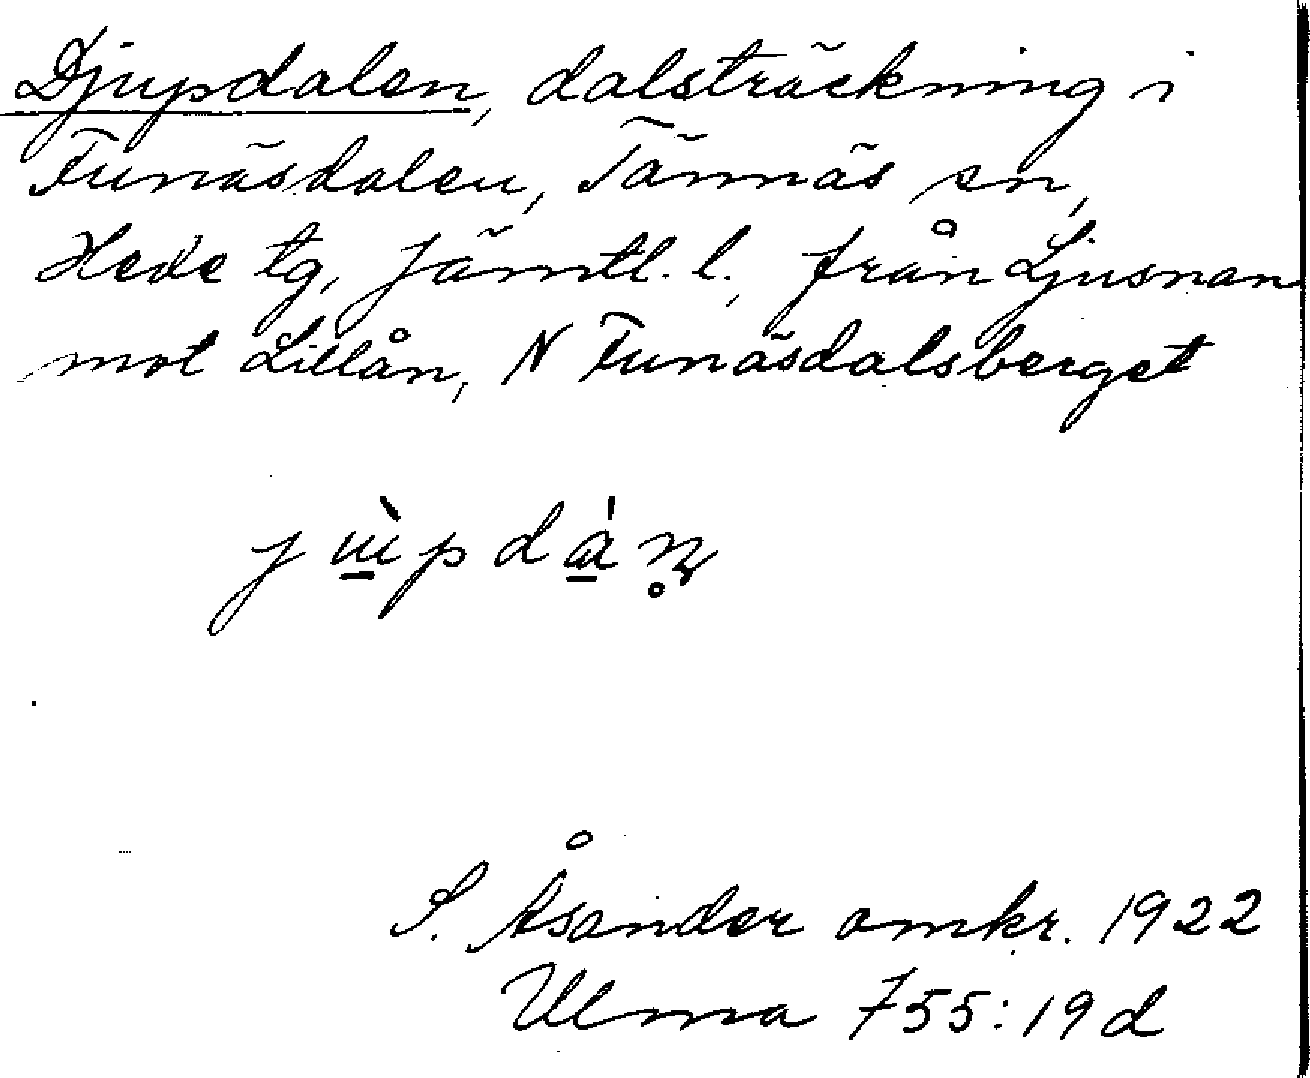 Djupdalen, dalsträckning i
Funäsdalen, Tännäs sn,
Hede tg, Jämtl. l., från Ljusnan
mot Lillån, N Funäsdalsberget
S. Åsander omkr. 1922
Ulma 755:19d